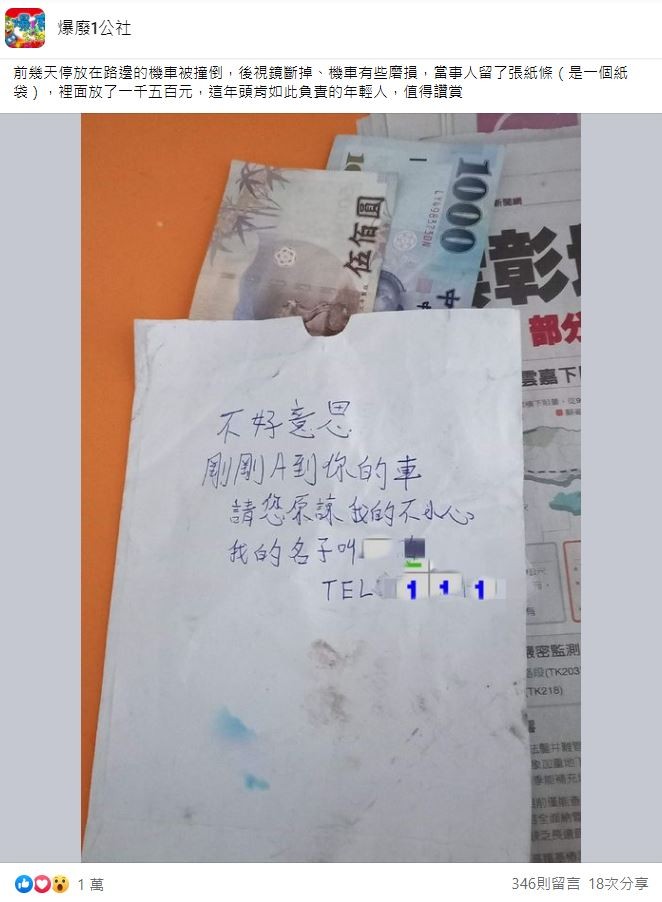 爆廢1公社
前幾天停放在路邊的機車被撞倒，後視鏡斷掉、機車有些磨損，當事人留了張紙條（是一個紙
袋），裡面放了一千五百元，這年頭肯如此負責的年輕人，值得讚賞
1000
LY498373DN
伍佰圓
中
新聞網
彰
部分
雲嘉下
不好意思
剛剛A到你的車
請您原諒我的不小心
我的名子叫
TEL 1 1 1
嚴密監測
路段(TK203
(TK218)
1 萬
346則留言 18次分享